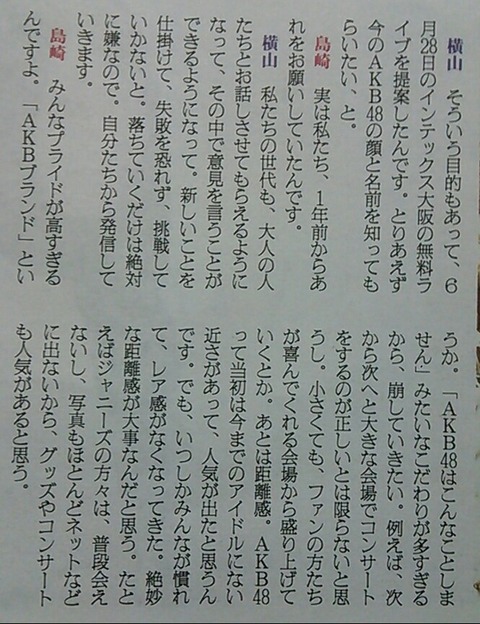 横山　そういう目的もあって、６
月28日のインテックス大阪の無料ラ
イブを提案したんです。とりあえず
今のＡＫＢ48の顔と名前を知っても
らいたい、と。
島崎　実は私たち、１年前からあ
れをお願いしていたんです。
横山　私たちの世代も、大人の人
たちとお話しさせてもらえるように
なって、その中で意見を言うことが
できるようになって。新しいことを
仕掛けて、失敗を恐れず、挑戦して
いかないと。落ちていくだけは絶対
に嫌なので。自分たちから発信して
いきます。
島崎　みんなプライドが高すぎる
んですよ。「ＡＫＢブランド」とい
うか。「ＡＫＢ48はこんなことしま
せん」みたいなこだわりが多すぎる
から、崩していきたい。例えば、次
から次へと大きな会場でコンサート
をするのが正しいとは限らないと思
うし。小さくても、ファンの方たち
が喜んでくれる会場から盛り上げて
いくとか。あとは距離感。ＡＫＢ48
って当初は今までのアイドルにない
近さがあって、人気が出たと思うん
です。でも、いつしかみんなが慣れ
て、レア感がなくなってきた。絶妙
な距離感が大事なんだと思う。たと
えばジャニーズの方々は、普段会え
ないし、写真もほとんどネットなど
に出ないから、グッズやコンサート
も人気があると思う。